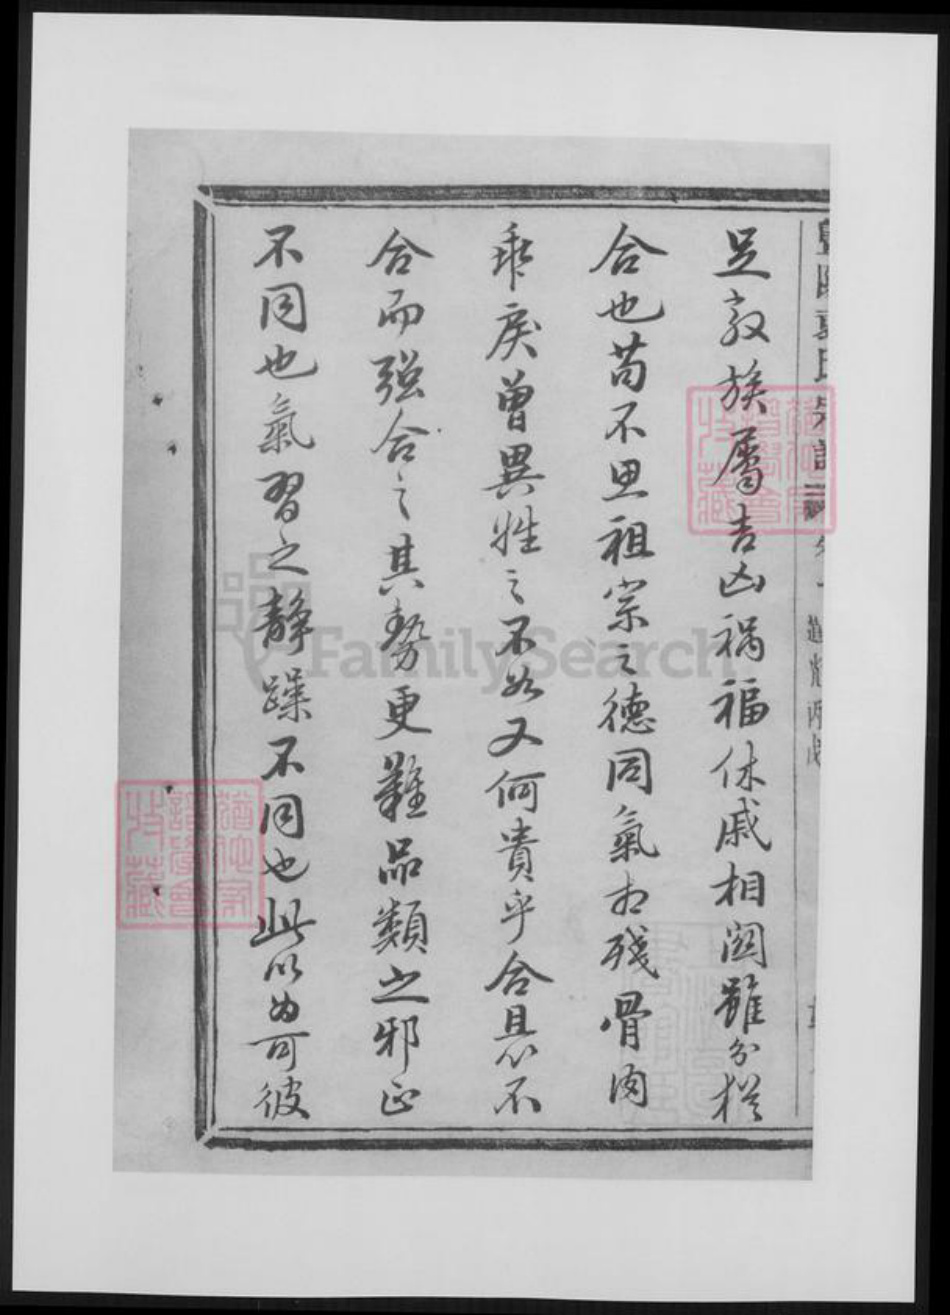 足敦族屬吉凶禍福休戚相関雖分猶
合也苟不思祖宗之德同氣相殘骨肉
乖戾曾異姓之不如又何貴乎合且不
合而强合之其勢更難品類之邪正
不同也氣習之靜躁不同也此以為可彼
FamilySearch